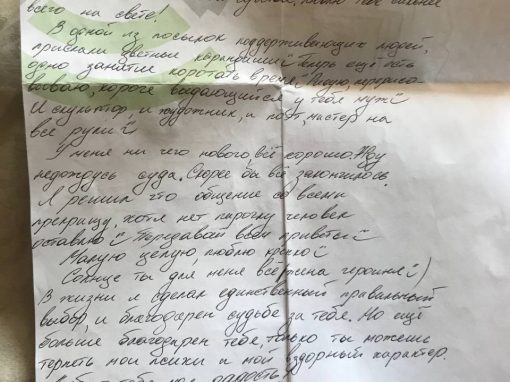 всего на свете!
В одной из посылок поддерживающих людей,
прислали цветные карандаши! Теперь ещё есть
одно занятие коротать время! Рисую,
короче выдающийся у тебя муж!
И скульптор, и художник, и поэт, мастер на
все руки!
У меня ни чего нового, всё хорошо. Жду
недождусь суда. Скорее бы всё закончилось.
Я решил что общение со всеми
прекращу, хотя нет парочку человек
оставлю! Передавай всем приветы!
Малую целую люблю крепко!
Солнце ты для меня всё жена героиня! )
В жизни я сделал единственный правильный
выбор, и благодарен судьбе за тебя. Но ещё
больше благодарен тебе, только ты можешь
терпеть мои психи и мой вздорный характер.